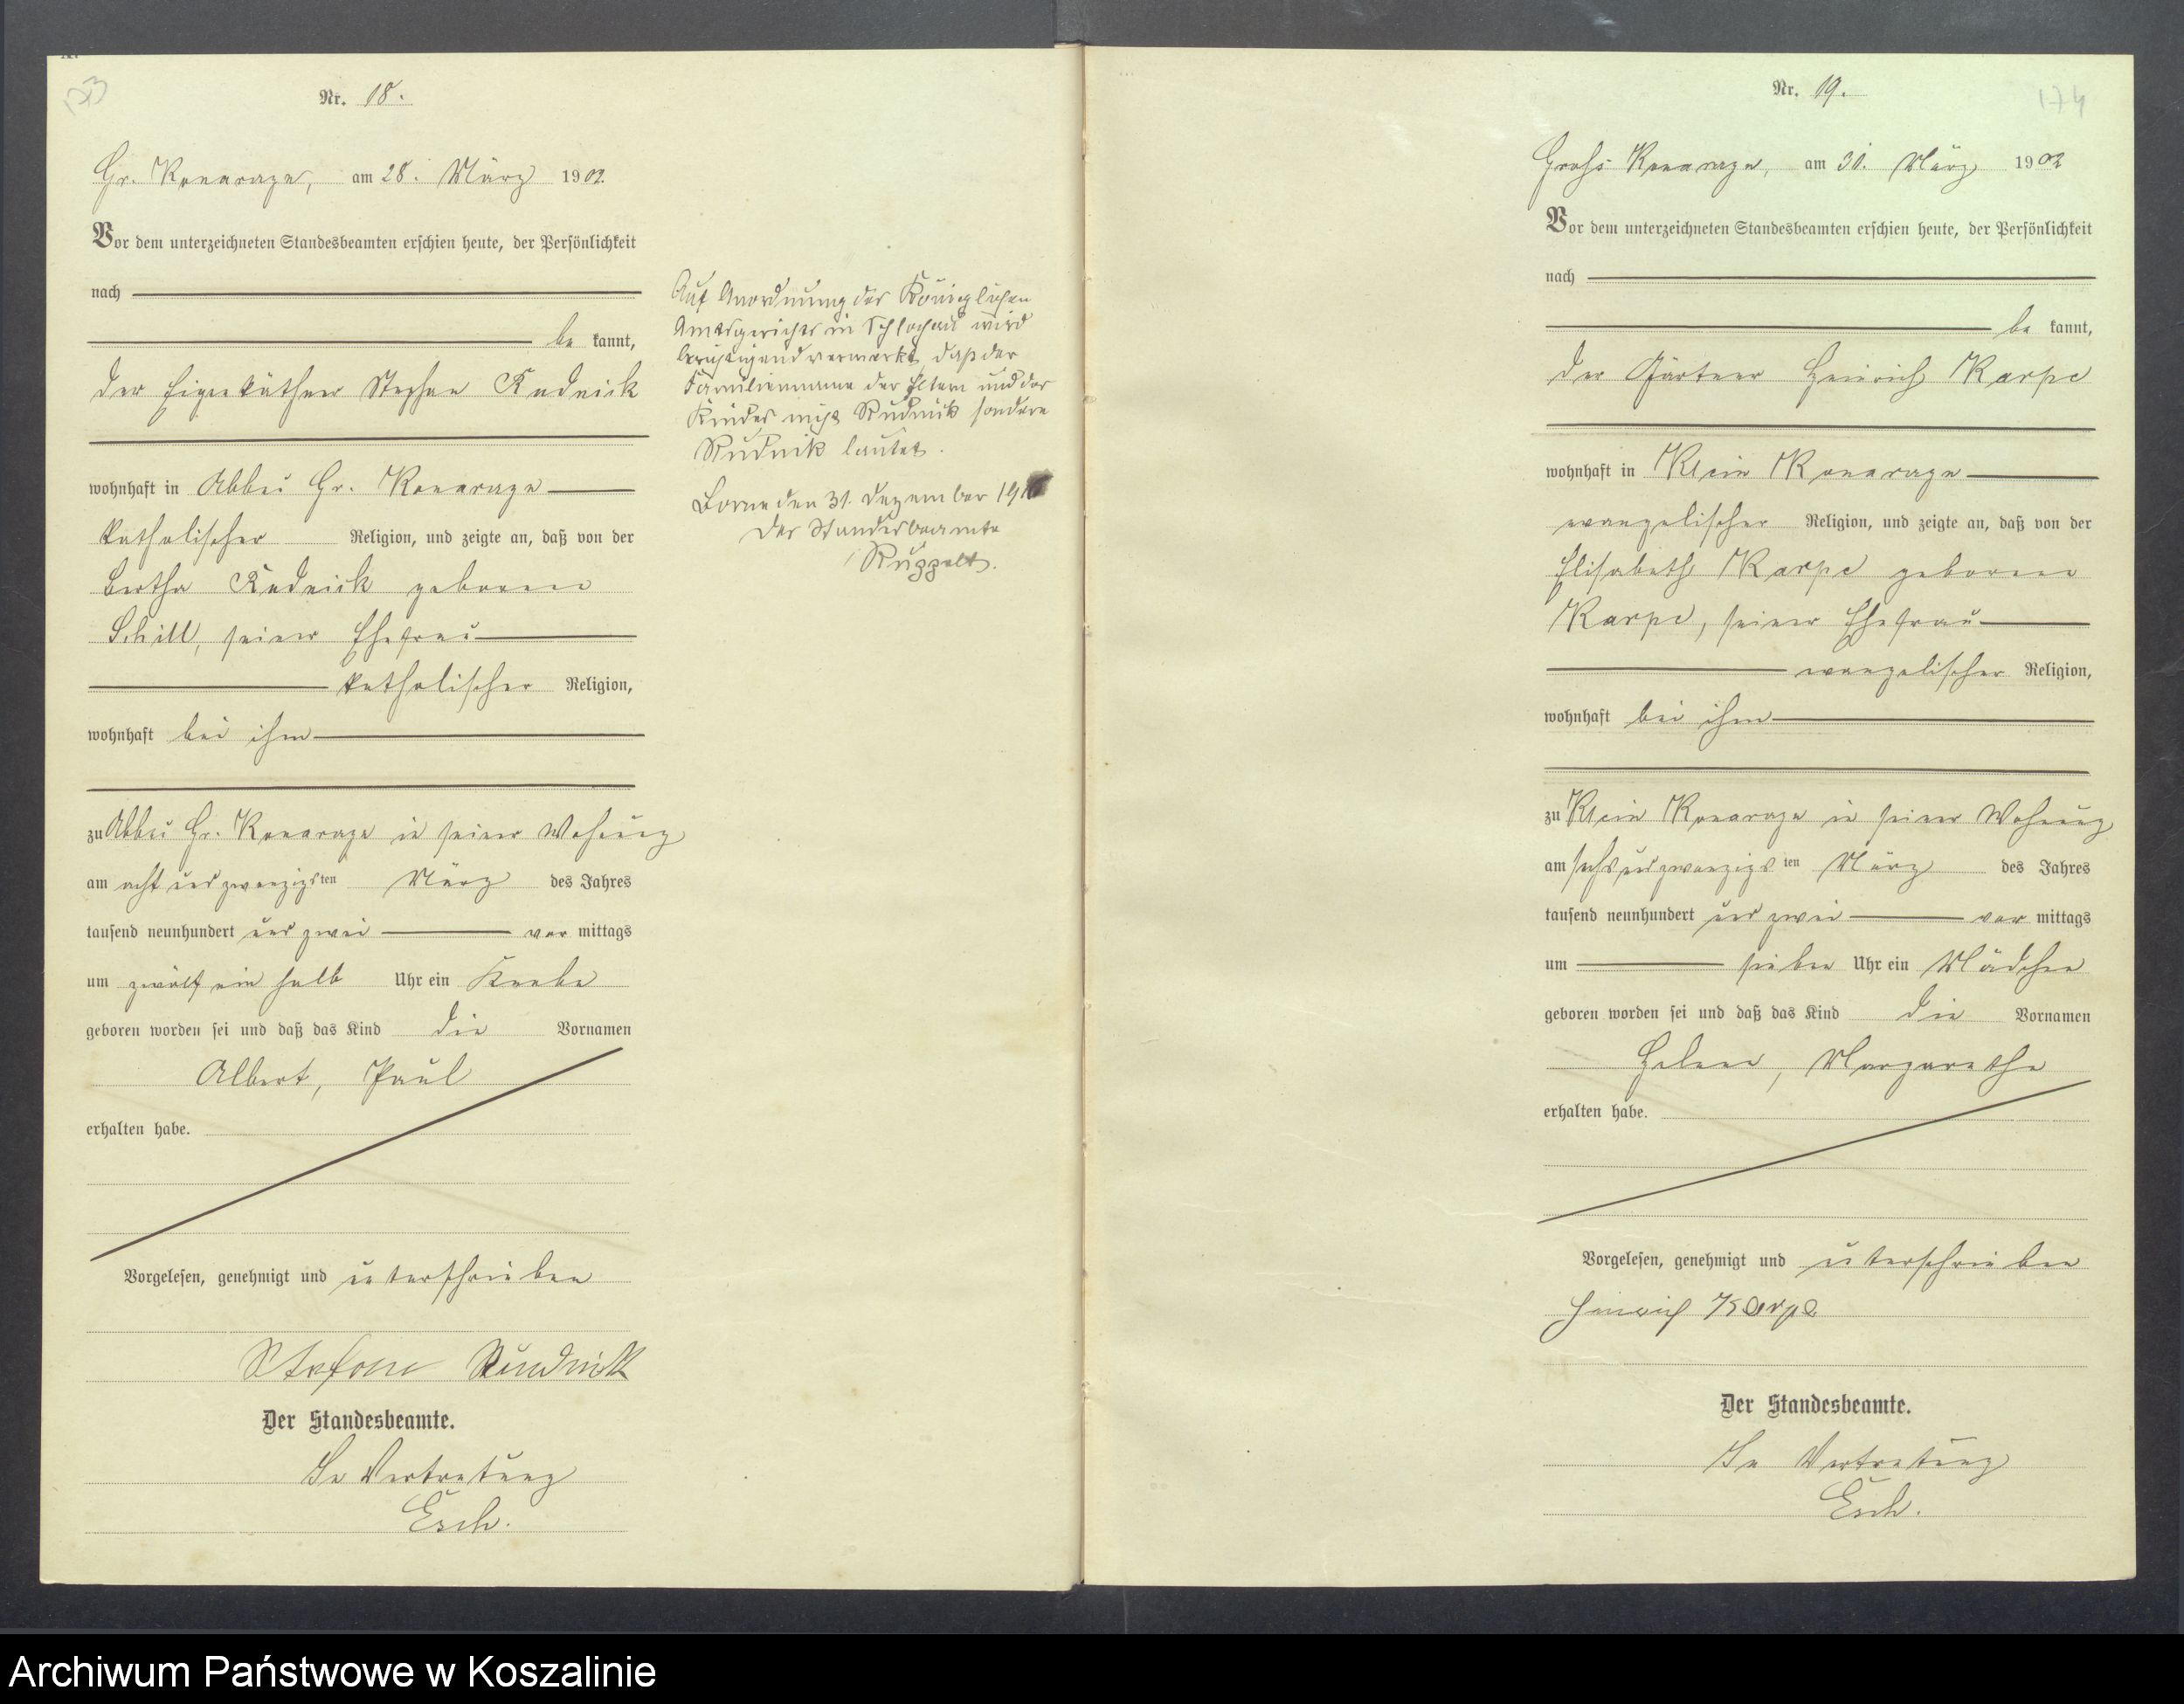 Nr. 18.
Gr. Konarzyn, am 28. März 1902.
Vor dem unterzeichneten Standesbeamten erschien heute, der Persönlichkeit
nach
be kannt,
der Eigenkäthner Stephan Rudnick
wohnhaft in Abbau Gr. Konarzyn
katholischer Religion, und zeigte an, daß von der
Bertha Rudnick geborene
Schill, seiner Ehefrau
katholischer Religion,
wohnhaft bei ihm
zu Abbau Gr. Konarzyn in seiner Wohnung
am acht und zwanzigsten März des Jahres
tausend neunhundert und zwei vor mittags
um zwölf ein halb Uhr ein Knabe
geboren worden sei und daß das Kind die Vornamen
Albert, Paul
erhalten habe.
Vorgelesen, genehmigt und unterschrieben
Stefan Rudnik
Der Standesbeamte.
In Vertretung
Esch.
Auf Anordnung des Königlichen
Amtsgerichts in Schlochau wird
berichtigend vermerkt, daß der
Familienname der Eltern und des
Kindes nicht Rudnick sondern
Rudnik lautet.
den 31. Dezember
Der Standesbeamte
Nr. 19.
174
Gross Konarzyn, am 31. März 1902
Vor dem unterzeichneten Standesbeamten erschien heute, der Persönlichkeit
nach
be kannt,
der Gärtner Heinrich Karpe
wohnhaft in Klein Konarzyn
evangelischer Religion, und zeigte an, daß von der
Elisabeth Karpe geborene
Karpe, seiner Ehefrau
evangelischer Religion,
wohnhaft bei ihm
zu Klein Konarzyn in seiner Wohnung
am sechs und zwanzigsten März des Jahres
tausend neunhundert und zwei vor mittags
um sieben Uhr ein Mädchen
geboren worden sei und daß das Kind die Vornamen
Helene, Margarethe
erhalten habe.
Vorgelesen, genehmigt und unterschrieben
Heinrich Karpe
Der Standesbeamte.
In Vertretung
Esch.
Archiwum Państwowe w Koszalinie